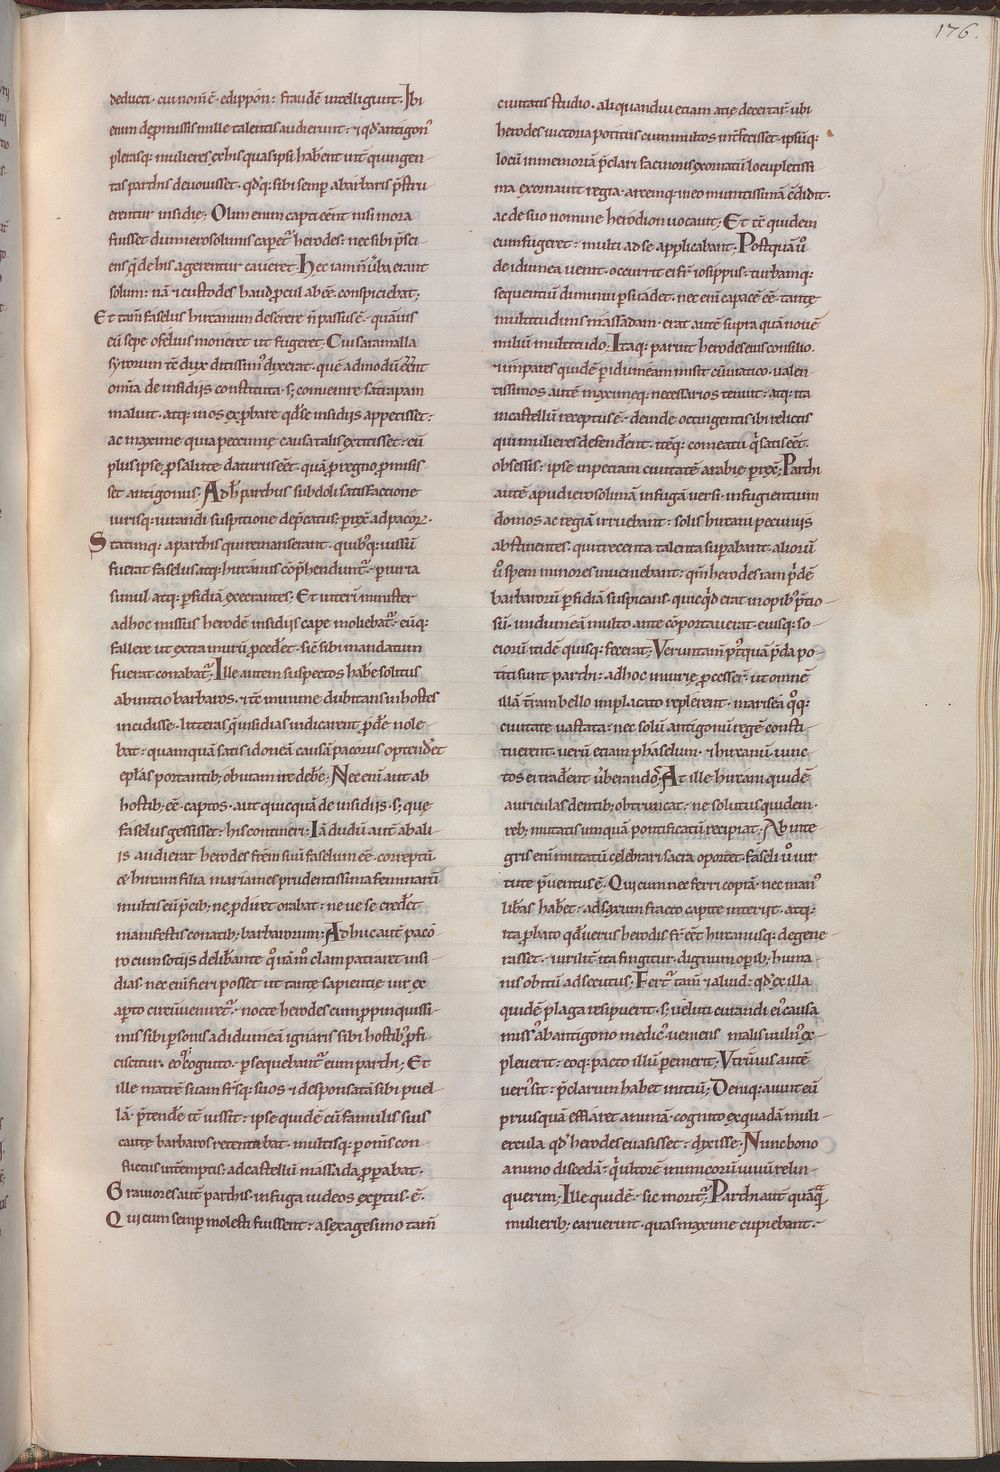 176.
deducti · cui nom̄ ē · edippon : fraudē intelligunt · Ibi
enim de p̄missis mille talentis audierunt : ⁊ qd̓ antigonꝰ
pleraſq; mulieres ex his quas ipsi hab̄ent int̄ quingen
tas parthis devovisset · qd̓q; sibi semꝑ a barbaris p̄stru
erentur insidie ; Olim enim capti eēnt nisi mora
fuisset dum ierosolimis caperet̄ herodes : nec sibi p̄sci
ens q̄ de his agerentur caveret · Hec iam n̄ ūba erant
solum : nā ⁊ custodes haud ꝓcul abeē · conspiciebat ;
Et tam̄ faselus hircanum deserere n̄ passus ē · quāvis
eū sepe ofelius moneret ut fugeret ; Cui saramalla
syrorum tē dux ditissimꝰ dixerat · quē admodū eēnt
om̄ia de insidiis constituta · s; convenire satrapam
maluit · atq; in os exp̄bare qd̓ se insidiis appetisset :
ac maxime quia peccunie causa talis extitisset : cū
plus ipse ꝓ salute daturus eēt · quā ꝓ regno ꝓmisis
set antigonus · Ad h̄ parthus subdoli satisfactione
iurisq; iurandi suspitione dep̄catus : p̄rex̄ ad pacorꝝ ·
Statimq; a parthis qui remanserant · quibꝰq; iussū
fuerat faselus atq; hircanus cōp̄henduntur · p̄iuria
simul atq; p̄fidiā execrantes ; Et interī minister
ad hoc missus herodē insidiis cape moliebat̄ · eūq;
fallere ut extra murū ꝓced̄et · sic̄ sibi mandatum
fuerat conabat̄ ; Ille autem suspectos hab̄e solitus
ab initio barbaros · ⁊ tē minime dubitans in hostes
incidisse · litteras q̄ insidias indicarent ꝓdi e nole
bat : quamquā satis idoneā causā pacorus optend̄et
epl̄as portantib; obviam ire debē ; Nec enī aut ab
hostib; eē captos · aut quicquā de insidiis · s; que
faselus gessisset : his contineri : Iā dudū aut̄ ab ali
is audierat herodes fr̄em suū faselum eē · correptū
& hircani filia mariames prudentissima feminarū
multis eū p̄cib; ne ꝓdiret orabat : neve se cred̄et
manifestis conatib; barbarorum ; Adhuc aut̄ paco
ro cum sotiis delib̄ante quō am̄ clam patraret insi
dias · nec enī fieri posset ut tante sapientie vir ex
ap̄to circūveniret̄ · nocte herodes cum propinquissi
mis sibi p̄sonis ad idumeā ignaris sibi hostibꝰ ꝓfi
ciscitur · eo q̄ cognito · p̄sequebant̄ eum parthi ; Et
ille matrē suam fr̄sq; suos ⁊ desponsatā sibi puel
lā · p̄tend̄e it̄ iussit : ipse quidē cū famulis suis
caute barbaros retentabat · multisq; p̄ om̄s con
flictus int̄emptis ; ad castellū massada ꝓpabat ·
Graviores aut̄ parthis · in fuga iudeos exp̄tus · ē ·
Qui cum semꝑ molesti fuissent : a sexagesimo tam̄
civitatis studio · aliquandiu etiam atie decertar̄ · ubi
herodes victoria potitus cum multos int̄fecisset · ipsūq;
locū in memoriā p̄clari facinoris exornatū locupletissi
ma exornavit regia · arcemq; in eo munitissimā ēdidit ·
ac de suo nomine herodion vocavit ; Et tē quidem
cum fugeret : multi ad se applicabant · Postquā ū̓
de idumea venit · occurrit ei fr̄ iosippus : turbamq;
sequentiū diminui p̄suadet · nec enī capacē eē tante
multitudinis massadam · erat autē supra quā novē
miliū multitudo · Itaq; paruit herodes eius consilio ·
⁊ impares quidē p̄ idumeam misit cū viatico · valen
tissimos autē maximeq; necessarios tenuit : atq; ita
in castellū receptus ē · deinde octingentis ibi relictis
qui mulieres defend̄ent · itēq; comeatū q̄ satis eēt ·
obsessis : ipse in petram civitatē arabie p̄rex̄ ; Parthi
autē apud ierosolimā in fugā versi · in fugientium
domos ac regiā irruebant : solis hircani pecuniis
abstinentes · qui trecenta talenta sup̄abant · aliorū
ū̓ spem minores inveniebant : qm̄ herodes iam p̄dē
barbarorū p̄fidiā suspicans · quicq̄d erat in opibꝰ p̄tio
sū · in idumeā multo ante cōportaverat · eiusq; so
ciorū itidē quisq; fecerat ; Veruntam̄ p̄tquā p̄da po
titi sunt parthi : ad hoc iniurie ꝓcesser̄ · ut omnē
illā t̄ram bello implacato replerent · mariseā qꝫ
civitate vastata : nec solū antigonū regē consti
tuerent · verū etiam phaselum · ⁊ hircanū · iunc
tos ei trad̄ent v̄berandoꝝ ; At ille hircani quidē
auriculas dentib; obtruncat · ne solutus quidem ·
reb; mutatis umquā pontificatū recipiat · Ab inte
gris enī mutatū celebrari sacra oportet · faseli ū̓ vir
tute p̄ventus ē · Qui cum nec ferri copiā · nec manꝰ
lib̄as hab̄et : ad saxum fracto capite interiit · atq;
ita p̄bato qd̓ verus herodis fr̄ eēt hircanusq; degene
rasset · virilit̄ · ita fingitur · dignum op̄ib; huma
nis obitū adsecutus · Fert̄ tam̄ ⁊ aliud : qd̓ ex illa
quidē plaga resipuerit · s; veluti curandi eiꝰ causa
missꝰ ab antigono medicꝰ veniens malis vulnꝰ ex
pleverit : eoq; pacto illū p̄emerit ; Vtrūvis autē
verꝰ sit : p̄clarum habet initiū ; Denq; aiunt eū
priusquā efflaret animā · cognito ex quadā muli
ercula qd̓ herodes evasisset : dixisse · Nunc bono
animo discedā · q̄ ultorē inimicorū vivū relin
querim ; Ille quidē · sic morit̄ ; Parthi aut̄ quāq̄
mulierib; caruerunt · quas maxime cupiebant ·